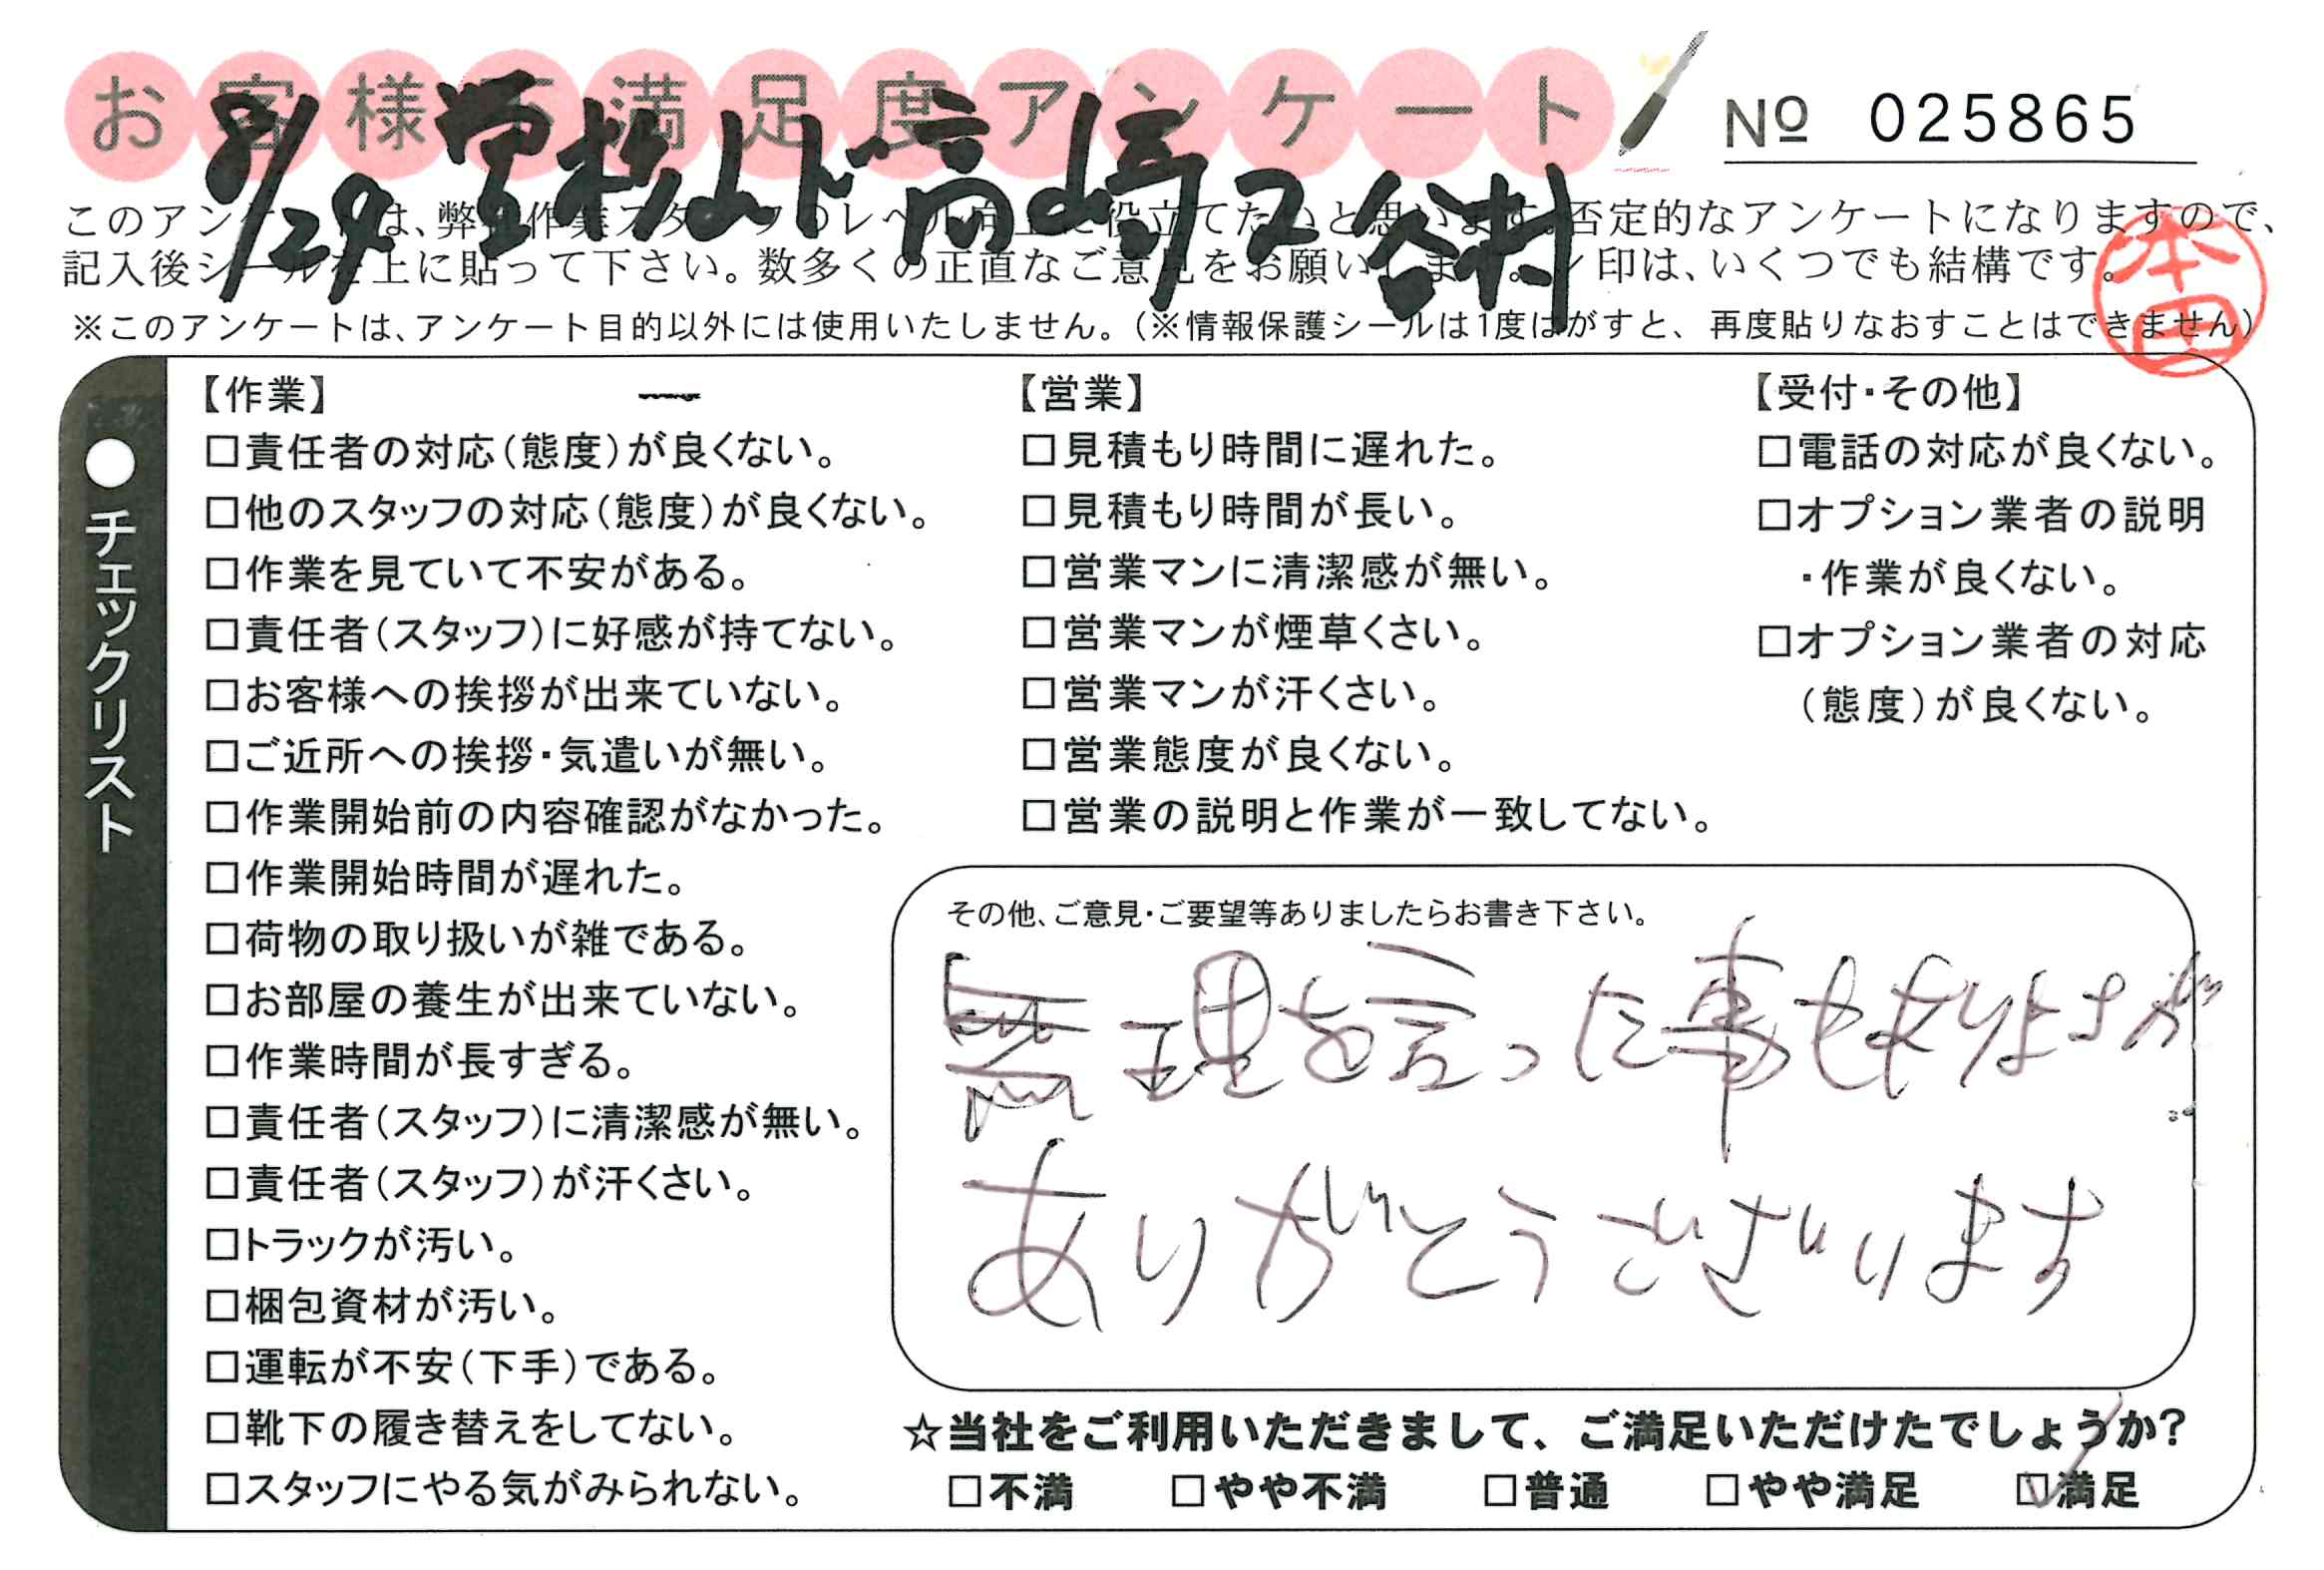 お客様不満足度アンケート
№ 025865
8/29 営 杉山 ド 高崎 ヱ 谷村
このアンケートは、弊社作業スタッフのレベル向上に役立てたいと思います。否定的なアンケートになりますので、
記入後シールを上に貼って下さい。数多くの正直なご意見をお願いします。レ印は、いくつでも結構です。
本田
※このアンケートは、アンケート目的以外には使用いたしません。(※情報保護シールは1度はがすと、再度貼りなおすことはできません)
●チェックリスト
【作業】
□責任者の対応(態度)が良くない。
□他のスタッフの対応(態度)が良くない。
□作業を見ていて不安がある。
□責任者(スタッフ)に好感が持てない。
□お客様への挨拶が出来ていない。
□ご近所への挨拶・気遣いが無い。
□作業開始前の内容確認がなかった。
□作業開始時間が遅れた。
□荷物の取り扱いが雑である。
□お部屋の養生が出来ていない。
□作業時間が長すぎる。
□責任者(スタッフ)に清潔感が無い。
□責任者(スタッフ)が汗くさい。
□トラックが汚い。
□梱包資材が汚い。
□運転が不安(下手)である。
□靴下の履き替えをしてない。
□スタッフにやる気がみられない。
【営業】
□見積もり時間に遅れた。
□見積もり時間が長い。
□営業マンに清潔感が無い。
□営業マンが煙草くさい。
□営業マンが汗くさい。
□営業態度が良くない。
□営業の説明と作業が一致してない。
【受付・その他】
□電話の対応が良くない。
□オプション業者の説明
・作業が良くない。
□オプション業者の対応
(態度)が良くない。
その他、ご意見・ご要望等ありましたらお書き下さい。
無理を言った事もありますが
ありがとうございます
☆当社をご利用いただきまして、ご満足いただけたでしょうか?
□不満 □やや不満 □普通 □やや満足 ☑満足